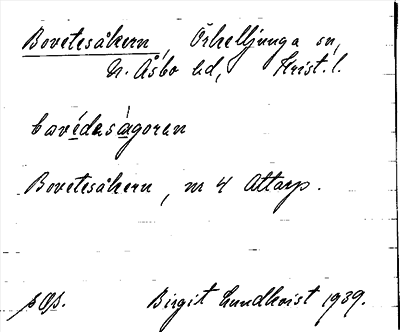 Bovetesåkern, Örkelljunga sn,
N. Åsbo hd, Krist. l.
bavédaságoran
Bovetesåkern, nr 4 Attarp.
Birgit Lundkvist 1939.